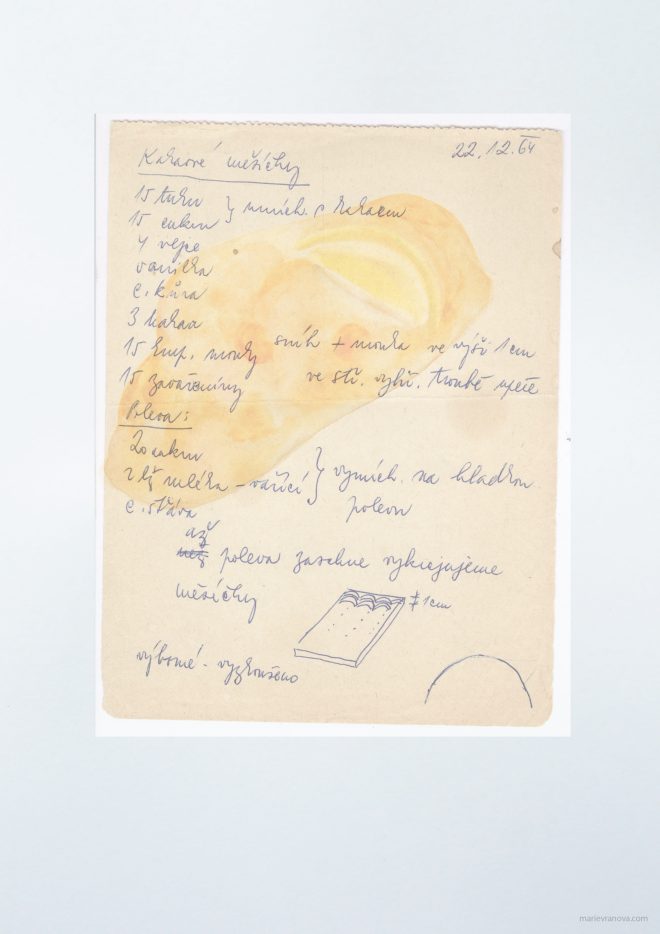 Kakaové měsíčky
22.12.64
15 tuku } umích. s kakaem
15 cukru
4 vejce
vanilka
c. kůra
3 kakaa
15 hup. mouky sníh + mouka ve výši 1 cm
15 zavařeniny ve stř. vyhř. troubě upéct
Poleva:
20 cukru
2 lž mléka - vařící } vymích. na hladkou
c. šťáva polevu
až
poleva zaschne vykrajujeme
měsíčky
1cm
výborné - vyzkoušeno
marievranova.com